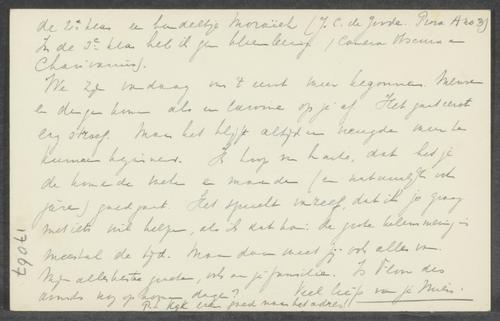 de 2e klas en bundeltje Mozaïek (J.C. de Joode. Proza A no 3)
In de 3e klas heb ik gen bloemlezing, (Camera Obscura en
Charivarius).
We zijn vandaag van 't eerst weer begonnen. Mensen
en dingen komen als een lawine op je af. Het gaat eerst
erg stroef. Maar het blijft altijd een vreugde weer te
kunnen beginnen. Ik hoop van harte, dat het je
de komende weken en maanden (en natuurlijk ook
jaren) goed gaat. Het spreekt vanzelf, dat ik je graag
met iets wil helpen, als ik dat kan. De grote belemmering is
meestal de tijd. Maar daar weet jij ook alles van.
Mijn allerbeste groeten, ook aan je familie. Is
avonds nog op komen dagen? Veel liefs van je
P.S. Kijk even goed naar het adres!!
17067